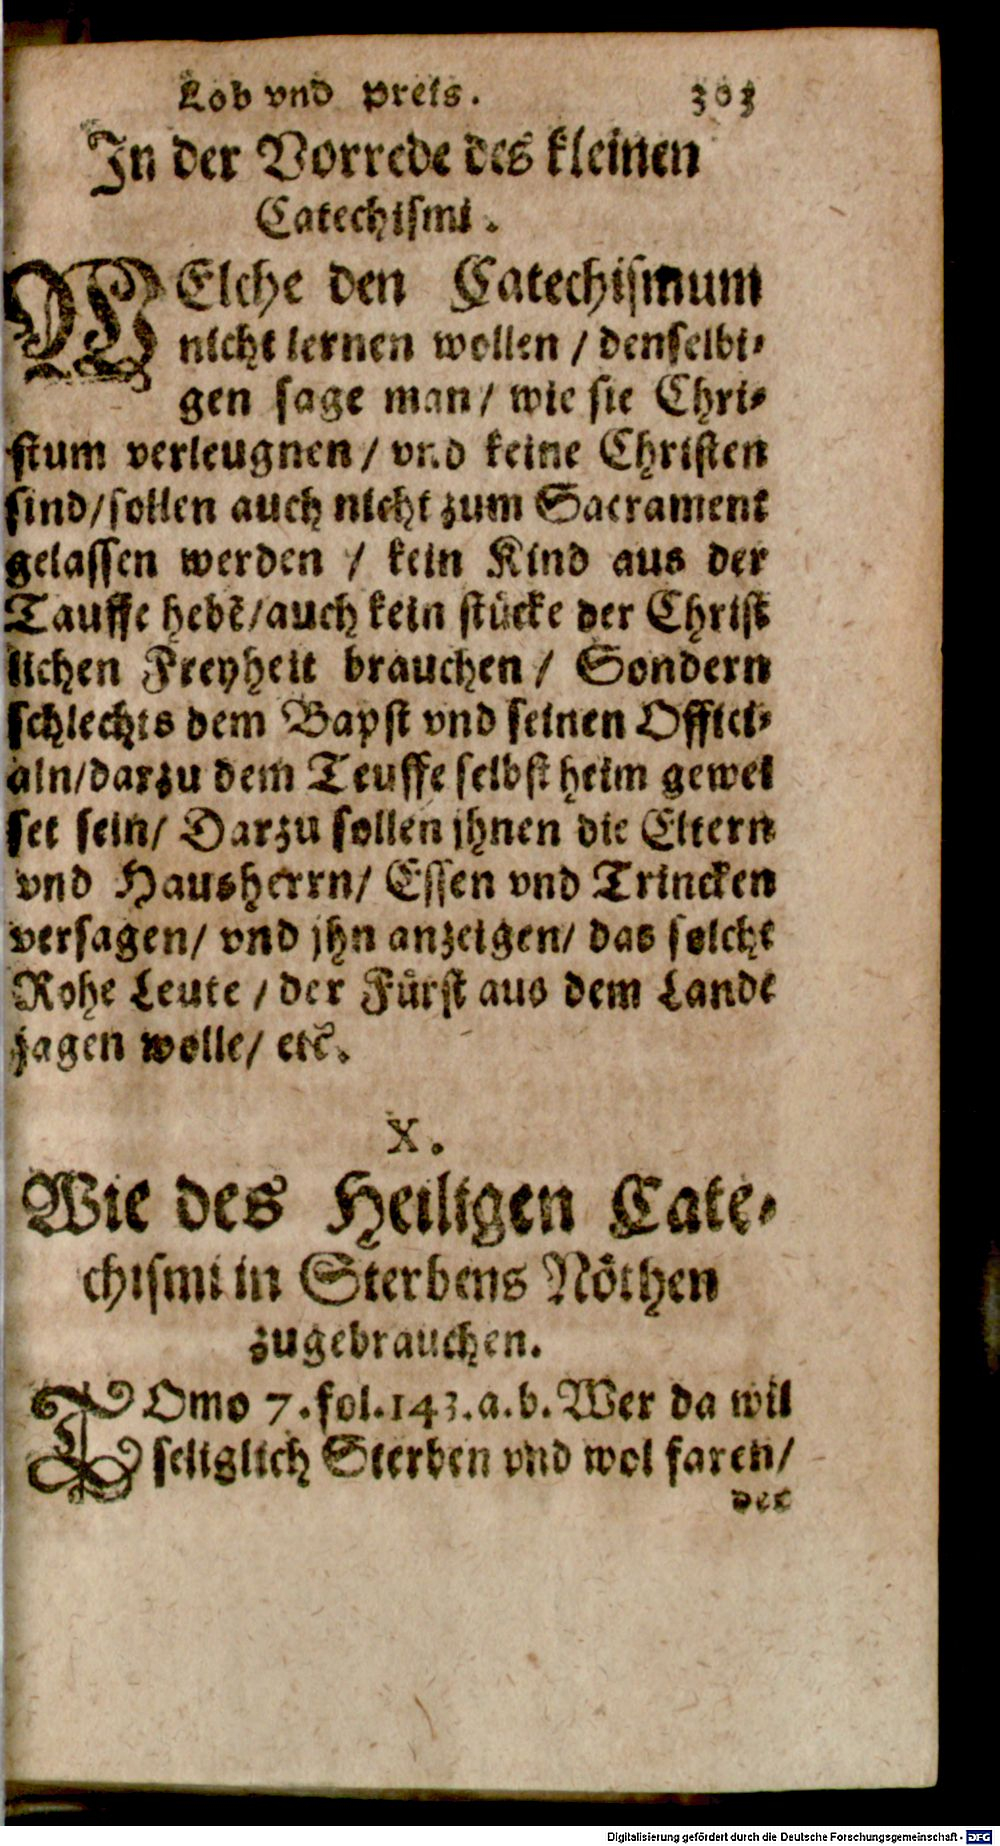 Lob vnd preis. 303
In der Vorrede des kleinen
Catechismi.
WElche den Catechismum
nicht lernen wollen / denselbi⸗
gen sage man / wie sie Chri⸗
stum verleugnen / vnd keine Christen
sind / sollen auch nicht zum Sacrament
gelassen werden / kein Kind aus der
Tauffe hebẽ / auch kein stücke der Christ
lichen Freyheit brauchen / Sondern
schlechts dem Bapst vnd seinen Offici⸗
aln / darzu dem Teuffe selbst heim gewei
set sein / Darzu sollen jhnen die Eltern
vnd Hausherrn / Essen vnd Trincken
versagen / vnd jhn anzeigen / das solche
Rohe Leute / der Fürst aus dem Lande
jagen wolle / etc.
X.
Wie des Heiligen Cate⸗
chismi in Sterbens Nöthen
zugebrauchen.
TOmo 7. fol. 143. a. b. Wer da wil
seliglich Sterben vnd wol faren /
der
Digitalisierung gefördert durch die Deutsche Forschungsgemeinschaft - DFG